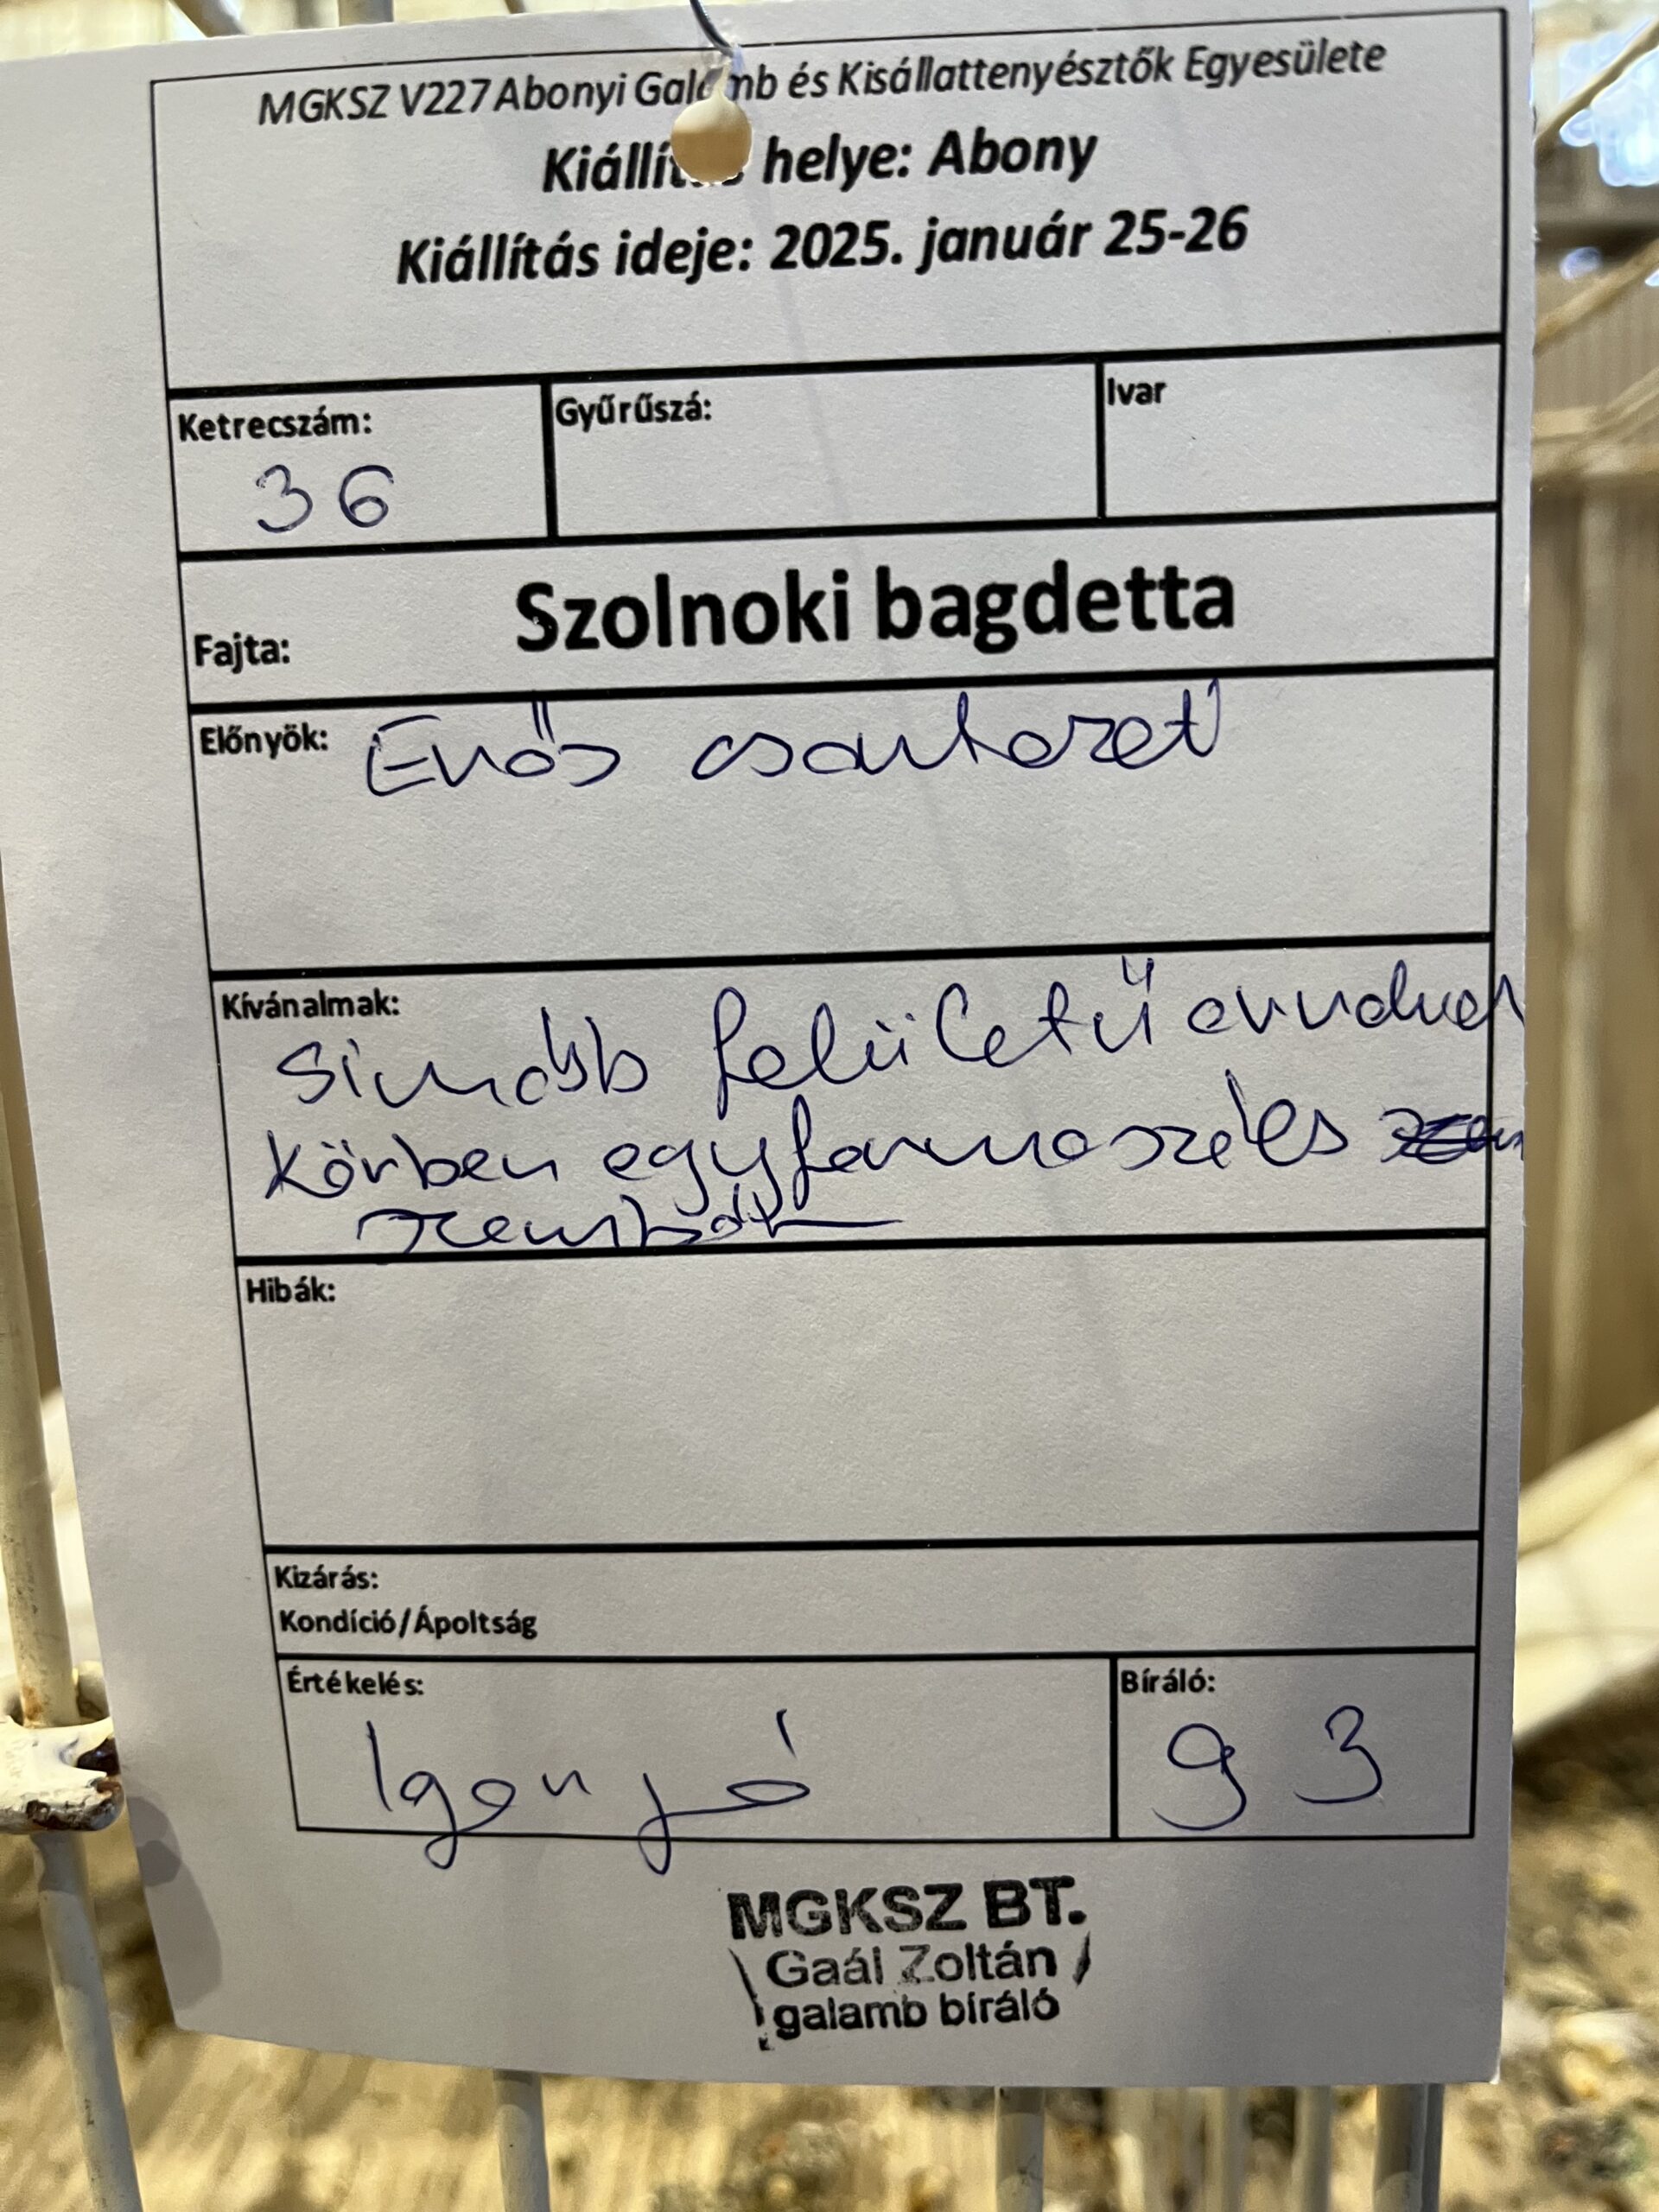 MGKSZ V227 Abonyi Galamb és Kisállattenyésztők Egyesülete
Kiállítás helye: Abony
Kiállítás ideje: 2025. január 25-26
Ketrecszám:
36
Gyűrűszá:
Ivar
Fajta:
Szolnoki bagdetta
Előnyök: Erős csontozat
Kívánalmak:
Simább felületű orrdudor
Körben egyforma széles
szemhúst
Hibák:
Kizárás:
Kondíció/Ápoltság
Értékelés:
Igen jó
Bíráló:
93
MGKSZ BT.
Gaál Zoltán
galamb bíráló